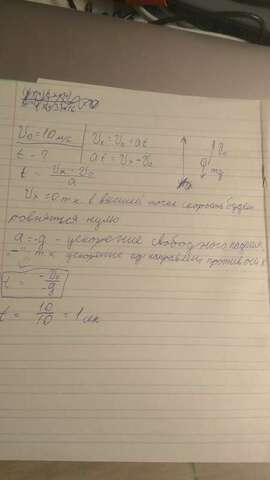 V₀ = 10 м/с
Vₓ = V₀ + at
t - ?
at = Vₓ - V₀
t = Vₓ - V₀ / a
V₀
mg
Vₓ = 0 т.к в высшей точке скорость будет
ровняться нулю
a = -g - ускорение свободного падения,
"-" т.к ускорение од направлен против оси x
t = -V₀ / -g
t = 10 / 10 = 1 сек